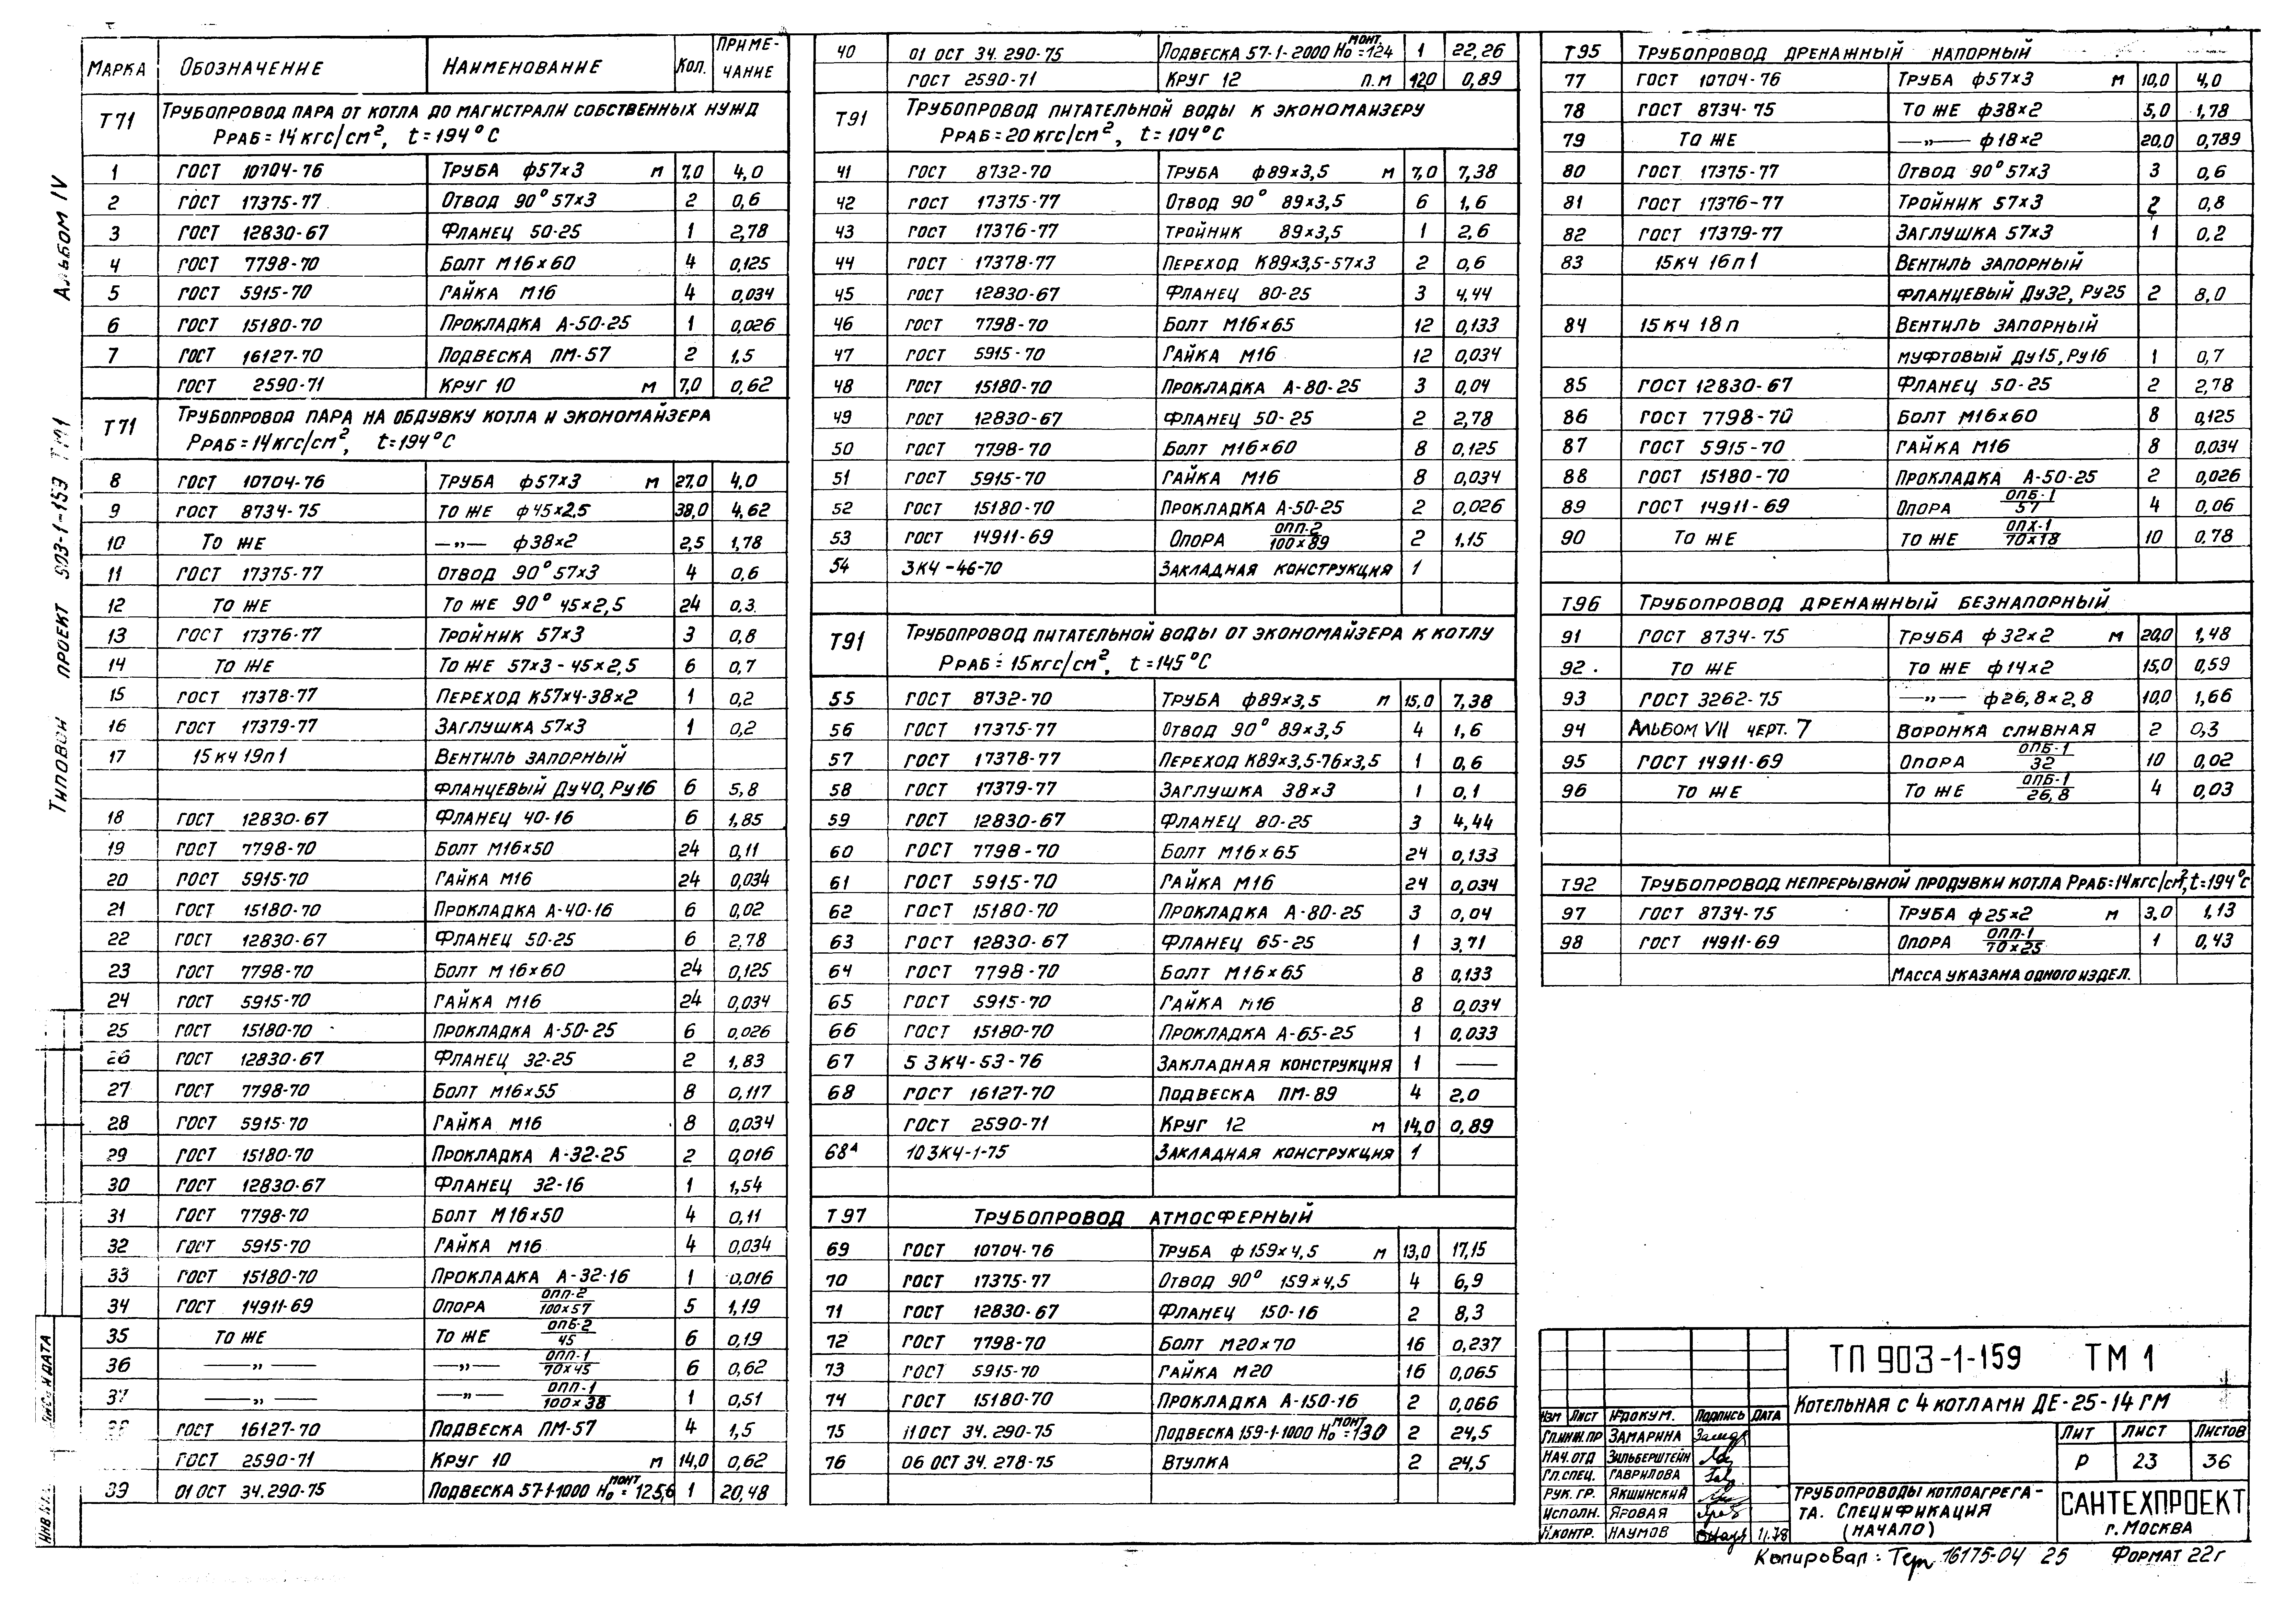 Альбом IV
Типовой проект 903-1-159 ТМ1
Марка | Обозначение | Наименование | Кол. | Примечание
Т71 | Трубопровод пара от котла до магистрали собственных нужд
Рраб=14кгс/см², t=194°С
1 | ГОСТ 10704-76 | Труба ф57×3 м | 7,0 | 4,0
2 | ГОСТ 17375-77 | Отвод 90° 57×3 | 2 | 0,6
3 | ГОСТ 12830-67 | Фланец 50-25 | 1 | 2,78
4 | ГОСТ 7798-70 | Болт М16×60 | 4 | 0,125
5 | ГОСТ 5915-70 | Гайка М16 | 4 | 0,034
6 | ГОСТ 15180-70 | Прокладка А-50-25 | 1 | 0,026
7 | ГОСТ 16127-70 | Подвеска ПМ-57 | 2 | 1,5
ГОСТ 2590-71 | Круг 10 м | 7,0 | 0,62
Т71 | Трубопровод пара на обдувку котла и экономайзера
Рраб=14кгс/см², t=194°С
8 | ГОСТ 10704-76 | Труба ф57×3 м | 27,0 | 4,0
9 | ГОСТ 8734-75 | То же ф45×2,5 | 38,0 | 4,62
10 | То же | —„— ф38×2 | 2,5 | 1,78
11 | ГОСТ 17375-77 | Отвод 90° 57×3 | 4 | 0,6
12 | То же | То же 90° 45×2,5 | 24 | 0,3
13 | ГОСТ 17376-77 | Тройник 57×3 | 3 | 0,8
14 | То же | То же 57×3-45×2,5 | 6 | 0,7
15 | ГОСТ 17378-77 | Переход К57×4-38×2 | 1 | 0,2
16 | ГОСТ 17379-77 | Заглушка 57×3 | 1 | 0,2
17 | 15кч 19п1 | Вентиль запорный
фланцевый Ду40, Ру16 | 6 | 5,8
18 | ГОСТ 12830-67 | Фланец 40-16 | 6 | 1,85
19 | ГОСТ 7798-70 | Болт М16×50 | 24 | 0,11
20 | ГОСТ 5915-70 | Гайка М16 | 24 | 0,034
21 | ГОСТ 15180-70 | Прокладка А-40-16 | 6 | 0,02
22 | ГОСТ 12830-67 | Фланец 50-25 | 6 | 2,78
23 | ГОСТ 7798-70 | Болт М16×60 | 24 | 0,125
24 | ГОСТ 5915-70 | Гайка М16 | 24 | 0,034
25 | ГОСТ 15180-70 | Прокладка А-50-25 | 6 | 0,026
26 | ГОСТ 12830-67 | Фланец 32-25 | 2 | 1,83
27 | ГОСТ 7798-70 | Болт М16×55 | 8 | 0,117
28 | ГОСТ 5915-70 | Гайка М16 | 8 | 0,034
29 | ГОСТ 15180-70 | Прокладка А-32-25 | 2 | 0,016
30 | ГОСТ 12830-67 | Фланец 32-16 | 1 | 1,54
31 | ГОСТ 7798-70 | Болт М16×50 | 4 | 0,11
32 | ГОСТ 5915-70 | Гайка М16 | 4 | 0,034
33 | ГОСТ 15180-70 | Прокладка А-32-16 | 1 | 0,016
34 | ГОСТ 14911-69 | Опора ОПП-2/100×57 | 5 | 1,19
35 | То же | То же ОПБ-2/45 | 6 | 0,19
36 | —„— | —„— ОПП-1/70×45 | 6 | 0,62
37 | —„— | —„— ОПП-1/100×38 | 1 | 0,51
ГОСТ 16127-70 | Подвеска ПМ-57 | 4 | 1,5
ГОСТ 2590-71 | Круг 10 м | 14,0 | 0,62
39 | 01 ОСТ 34.290-75 | Подвеска 57-1-1000 Н₀монт=1256 | 1 | 20,48
40 | 01 ОСТ 34.290-75 | Подвеска 57-1-2000 Н₀монт=124 | 1 | 22,26
ГОСТ 2590-71 | Круг 12 п.м | 12,0 | 0,89
Т91 | Трубопровод питательной воды к экономайзеру
Рраб=20кгс/см², t=104°С
41 | ГОСТ 8732-70 | Труба ф89×3,5 м | 7,0 | 7,38
42 | ГОСТ 17375-77 | Отвод 90° 89×3,5 | 6 | 1,6
43 | ГОСТ 17376-77 | Тройник 89×3,5 | 1 | 2,6
44 | ГОСТ 17378-77 | Переход К89×3,5-57×3 | 2 | 0,6
45 | ГОСТ 12830-67 | Фланец 80-25 | 3 | 4,44
46 | ГОСТ 7798-70 | Болт М16×65 | 12 | 0,133
47 | ГОСТ 5915-70 | Гайка М16 | 12 | 0,034
48 | ГОСТ 15180-70 | Прокладка А-80-25 | 3 | 0,04
49 | ГОСТ 12830-67 | Фланец 50-25 | 2 | 2,78
50 | ГОСТ 7798-70 | Болт М16×60 | 8 | 0,125
51 | ГОСТ 5915-70 | Гайка М16 | 8 | 0,034
52 | ГОСТ 15180-70 | Прокладка А-50-25 | 2 | 0,026
53 | ГОСТ 14911-69 | Опора ОПП-2/100×89 | 2 | 1,15
54 | ЗКЧ-46-70 | Закладная конструкция | 1
Т91 | Трубопровод питательной воды от экономайзера к котлу
Рраб=15кгс/см², t=145°С
55 | ГОСТ 8732-70 | Труба ф89×3,5 м | 15,0 | 7,38
56 | ГОСТ 17375-77 | Отвод 90° 89×3,5 | 4 | 1,6
57 | ГОСТ 17378-77 | Переход К89×3,5-76×3,5 | 1 | 0,6
58 | ГОСТ 17379-77 | Заглушка 38×3 | 1 | 0,1
59 | ГОСТ 12830-67 | Фланец 80-25 | 3 | 4,44
60 | ГОСТ 7798-70 | Болт М16×65 | 24 | 0,133
61 | ГОСТ 5915-70 | Гайка М16 | 24 | 0,034
62 | ГОСТ 15180-70 | Прокладка А-80-25 | 3 | 0,04
63 | ГОСТ 12830-67 | Фланец 65-25 | 1 | 3,71
64 | ГОСТ 7798-70 | Болт М16×65 | 8 | 0,133
65 | ГОСТ 5915-70 | Гайка М16 | 8 | 0,034
66 | ГОСТ 15180-70 | Прокладка А-65-25 | 1 | 0,033
67 | 5 ЗКЧ-53-76 | Закладная конструкция | 1 | —
68 | ГОСТ 16127-70 | Подвеска ПМ-89 | 4 | 2,0
ГОСТ 2590-71 | Круг 12 м | 14,0 | 0,89
68А | 10 ЗКЧ-1-75 | Закладная конструкция | 1
Т97 | Трубопровод атмосферный
69 | ГОСТ 10704-76 | Труба ф159×4,5 м | 13,0 | 17,15
70 | ГОСТ 17375-77 | Отвод 90° 159×4,5 | 4 | 6,9
71 | ГОСТ 12830-67 | Фланец 150-16 | 2 | 8,3
72 | ГОСТ 7798-70 | Болт М20×70 | 16 | 0,237
73 | ГОСТ 5915-70 | Гайка М20 | 16 | 0,065
74 | ГОСТ 15180-70 | Прокладка А-150-16 | 2 | 0,066
75 | 11 ОСТ 34.290-75 | Подвеска 159-1-1000 Н₀монт=130 | 2 | 24,5
76 | 06 ОСТ 34.278-75 | Втулка | 2 | 24,5
Т95 | Трубопровод дренажный напорный
77 | ГОСТ 10704-76 | Труба ф57×3 м | 10,0 | 4,0
78 | ГОСТ 8734-75 | То же ф38×2 | 5,0 | 1,78
79 | То же | —„— ф18×2 | 20,0 | 0,789
80 | ГОСТ 17375-77 | Отвод 90° 57×3 | 3 | 0,6
81 | ГОСТ 17376-77 | Тройник 57×3 | 2 | 0,8
82 | ГОСТ 17379-77 | Заглушка 57×3 | 1 | 0,2
83 | 15кч 16п1 | Вентиль запорный
фланцевый Ду32, Ру25 | 2 | 8,0
84 | 15кч 18п | Вентиль запорный
муфтовый Ду15, Ру16 | 1 | 0,7
85 | ГОСТ 12830-67 | Фланец 50-25 | 2 | 2,78
86 | ГОСТ 7798-70 | Болт М16×60 | 8 | 0,125
87 | ГОСТ 5915-70 | Гайка М16 | 8 | 0,034
88 | ГОСТ 15180-70 | Прокладка А-50-25 | 2 | 0,026
89 | ГОСТ 14911-69 | Опора ОПБ-1/57 | 4 | 0,06
90 | То же | То же ОПХ-1/70×18 | 10 | 0,78
Т96 | Трубопровод дренажный безнапорный
91 | ГОСТ 8734-75 | Труба ф32×2 м | 20,0 | 1,48
92. | То же | То же ф14×2 | 15,0 | 0,59
93 | ГОСТ 3262-75 | —„— ф26,8×2,8 | 10,0 | 1,66
94 | Альбом VII черт. 7 | Воронка сливная | 2 | 0,3
95 | ГОСТ 14911-69 | Опора ОПБ-1/32 | 10 | 0,02
96 | То же | То же ОПБ-1/26,8 | 4 | 0,03
Т92 | Трубопровод непрерывной продувки котла Рраб=14кгс/см², t=194°С
97 | ГОСТ 8734-75 | Труба ф25×2 м | 3,0 | 1,13
98 | ГОСТ 14911-69 | Опора ОПП-1/70×25 | 1 | 0,43
Масса указана одного издел.
ТП 903-1-159 ТМ 1
Котельная с 4 котлами ДЕ-25-14 ГМ
Изм Лист №докум. Подпись Дата
Гл.инж.пр Замарина
Нач.отд Зильберштейн
Гл.спец. Гаврилова
Рук. гр. Якшинский
Исполн. Яровая
Н.контр. Наумов 11.78
Лит Лист Листов
Р 23 36
Трубопроводы котлоагрега-
та. Спецификация
(начало)
САНТЕХПРОЕКТ
г. Москва
Копировал: 16175-04 25 Формат 22г